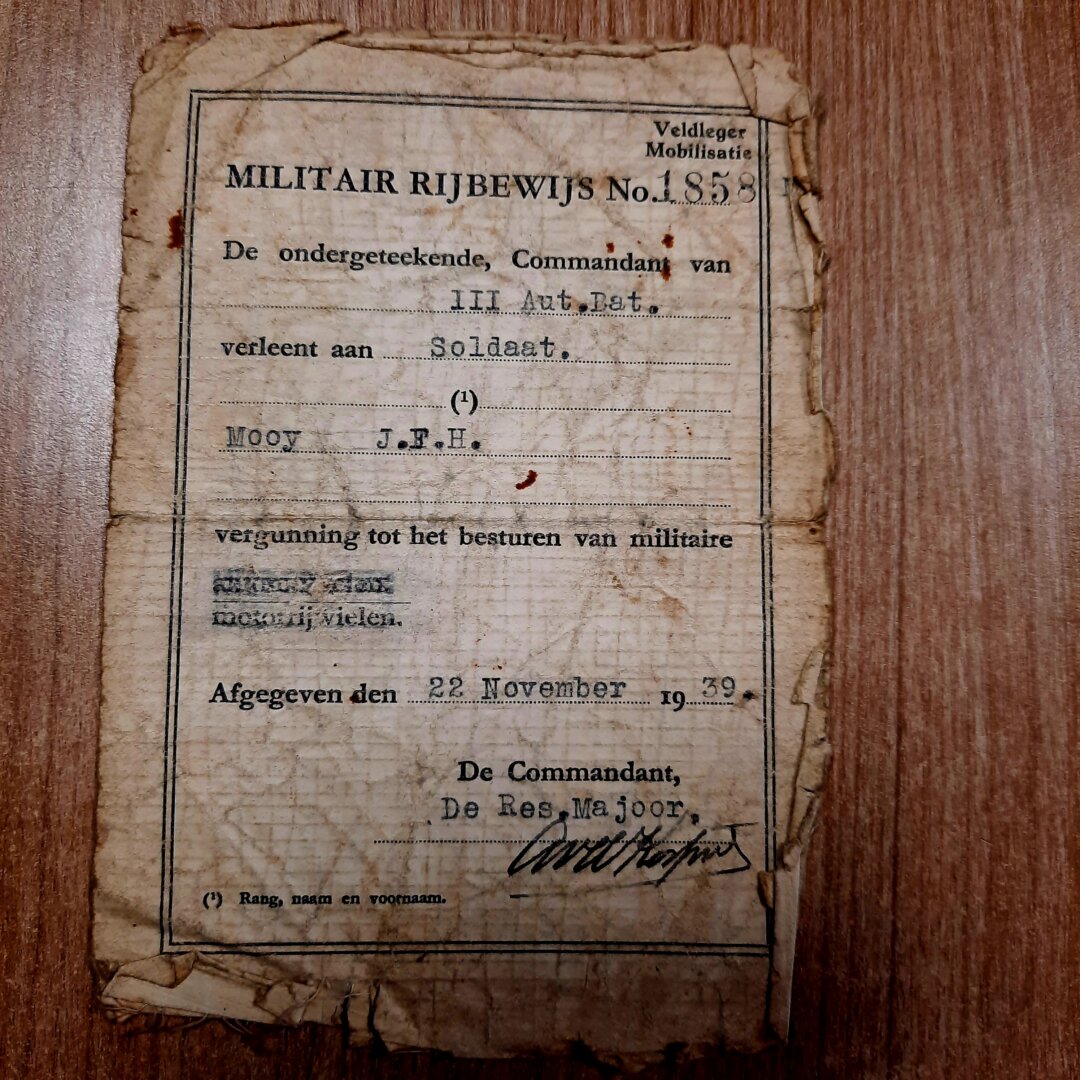 Veldleger
Mobilisatie
MILITAIR RIJBEWIJS No. 1858
De ondergeteekende, Commandant van
III Aut.Bat.
verleent aan Soldaat.
(¹)
Mooy J.F.H.
vergunning tot het besturen van militaire
motorrijwielen.
Afgegeven den 22 November 1939.
De Commandant,
De Res.Majoor.
(¹) Rang, naam en voornaam.